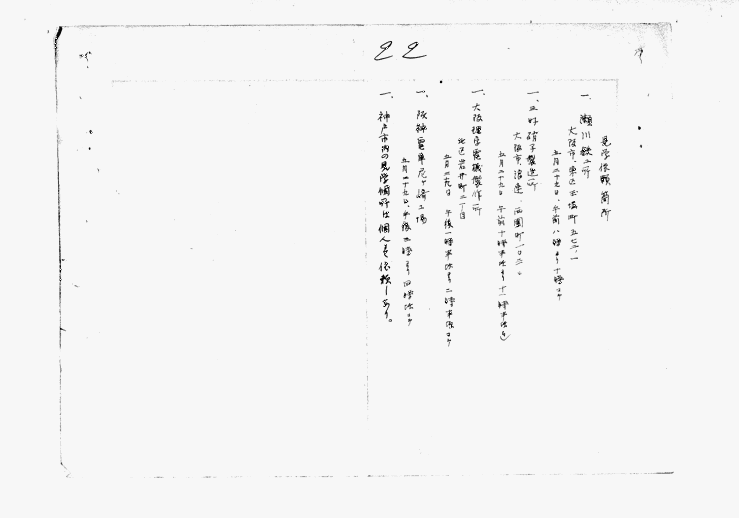 22
見学依頼箇所
一、瀬川鉄工所
大阪市、東区玉堀町五七、一
五月二十九日、午前八時より十時頃
一、三好硝子製造所
大阪市、浪速、西園町一〇三
五月二十九日 午前十時半頃より十一時半頃
一、大阪理学電機製作所
北区岩井町二丁目
五月二十九日 午後一時半頃より二時半頃
一、阪神電車尼ヶ崎工場
五月二十九日、午後三時より四時頃
一、神戸市内の見学個所は個人を依頼しあり。